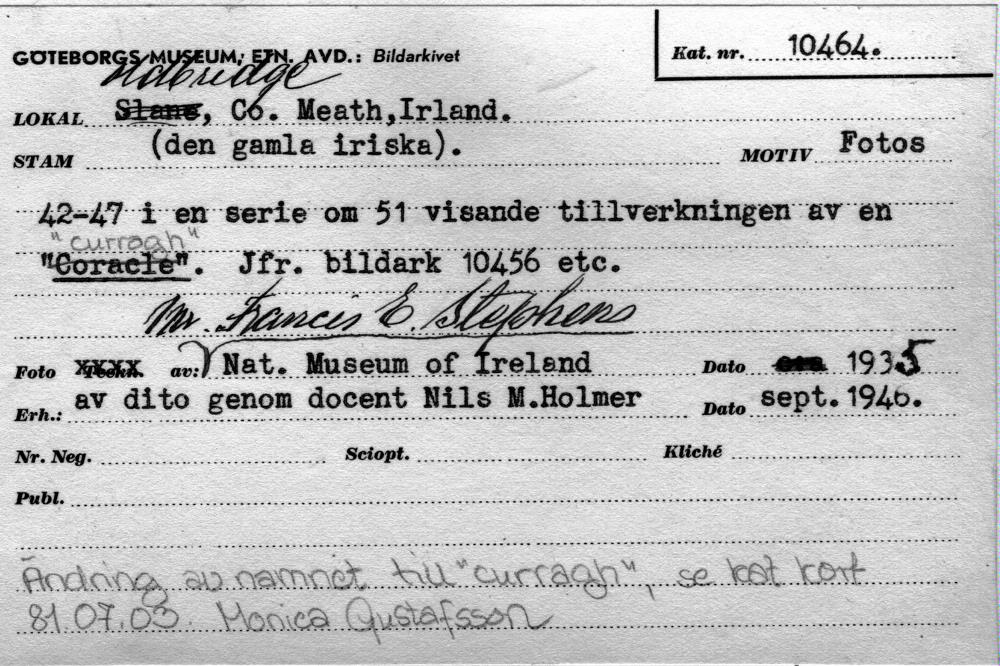 GÖTEBORGS MUSEUM, ETN. AVD.: Bildarkivet
Kat. nr. 10464.
Oldbridge
LOKAL Slane, Co. Meath,Irland.
STAM (den gamla iriska). MOTIV Fotos
42-47 i en serie om 51 visande tillverkningen av en
"curragh"
"Coracle". Jfr. bildark 10456 etc.
Mr. Francis E. Stephens
Foto xxxx av: Nat. Museum of Ireland Dato 1935
Erh.: av dito genom docent Nils M.Holmer Dato sept. 1946.
Nr. Neg. Sciopt. Kliché
Publ.
Ändring av namnet till "curragh", se kat kort
81.07.03. Monica Gustafsson